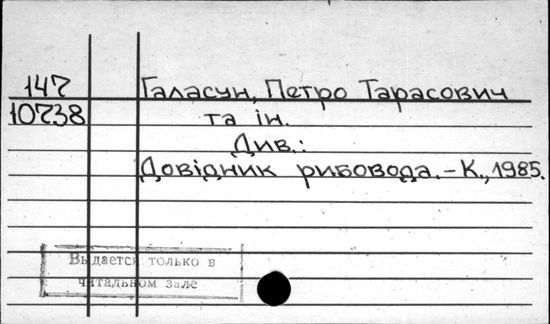 147 Галасун, Петро Тарасович
10738 та ін.
Див.:
Довідник рибовода.-К.,1985.
Выдается только в
читальном зале